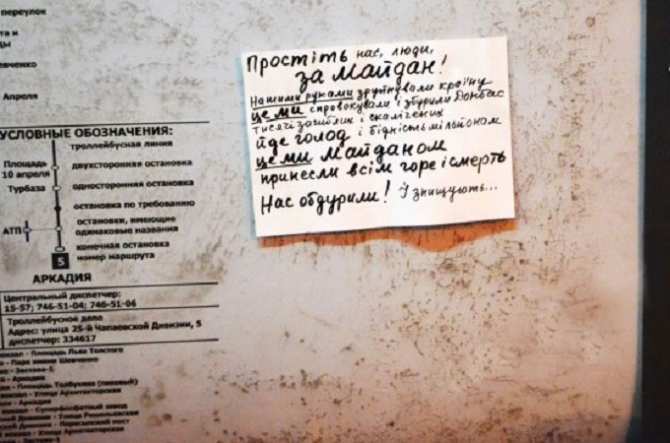 переулок
та и
Апреля
УСЛОВНЫЕ ОБОЗНАЧЕНИЯ:
троллейбусная линия
Площадь
10 апреля
двухсторонняя остановка
Турбаза
односторонняя остановка
остановка по требованию
АТП
остановки, имеющие
одинаковые названия
конечная остановка
5
номер маршрута
АРКАДИЯ
Центральный диспетчер:
15-57; 746-51-04; 746-51-04
Троллейбусное депо
Адрес: улица 25-й Чапаевской Дивизии, 5
диспетчер: 334617
Площадь Льва Толстого
Парк имени Шевченко
Аркадия
Площадь Толбухина
улица Архитекторская
Аркадия
Суперфосфатный завод
улица Архитекторская
Простіть нас, люди,
за Майдан!
Нашими руками зруйнували країну
це ми спровокували і збурили Донбас
тисячі загиблих і скалічених
йде голод і бідність мільйонам
це ми Майданом
принесли всім горе і смерть
Нас обдурили! І знищують...